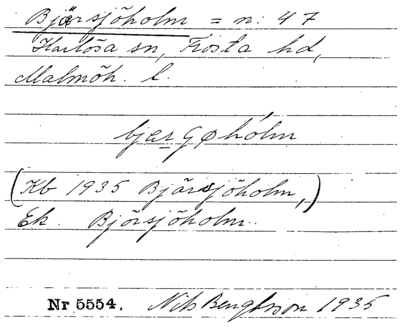 Bjärsjöholm = n: 47
Harlösa sn, Frosta hd,
Malmöh. l.
bjærʃøhólm
(Kb 1935 Bjärsjöholm,)
Ek. Björsjöholm.
Nr 5554. Nils Bengtsson 1935